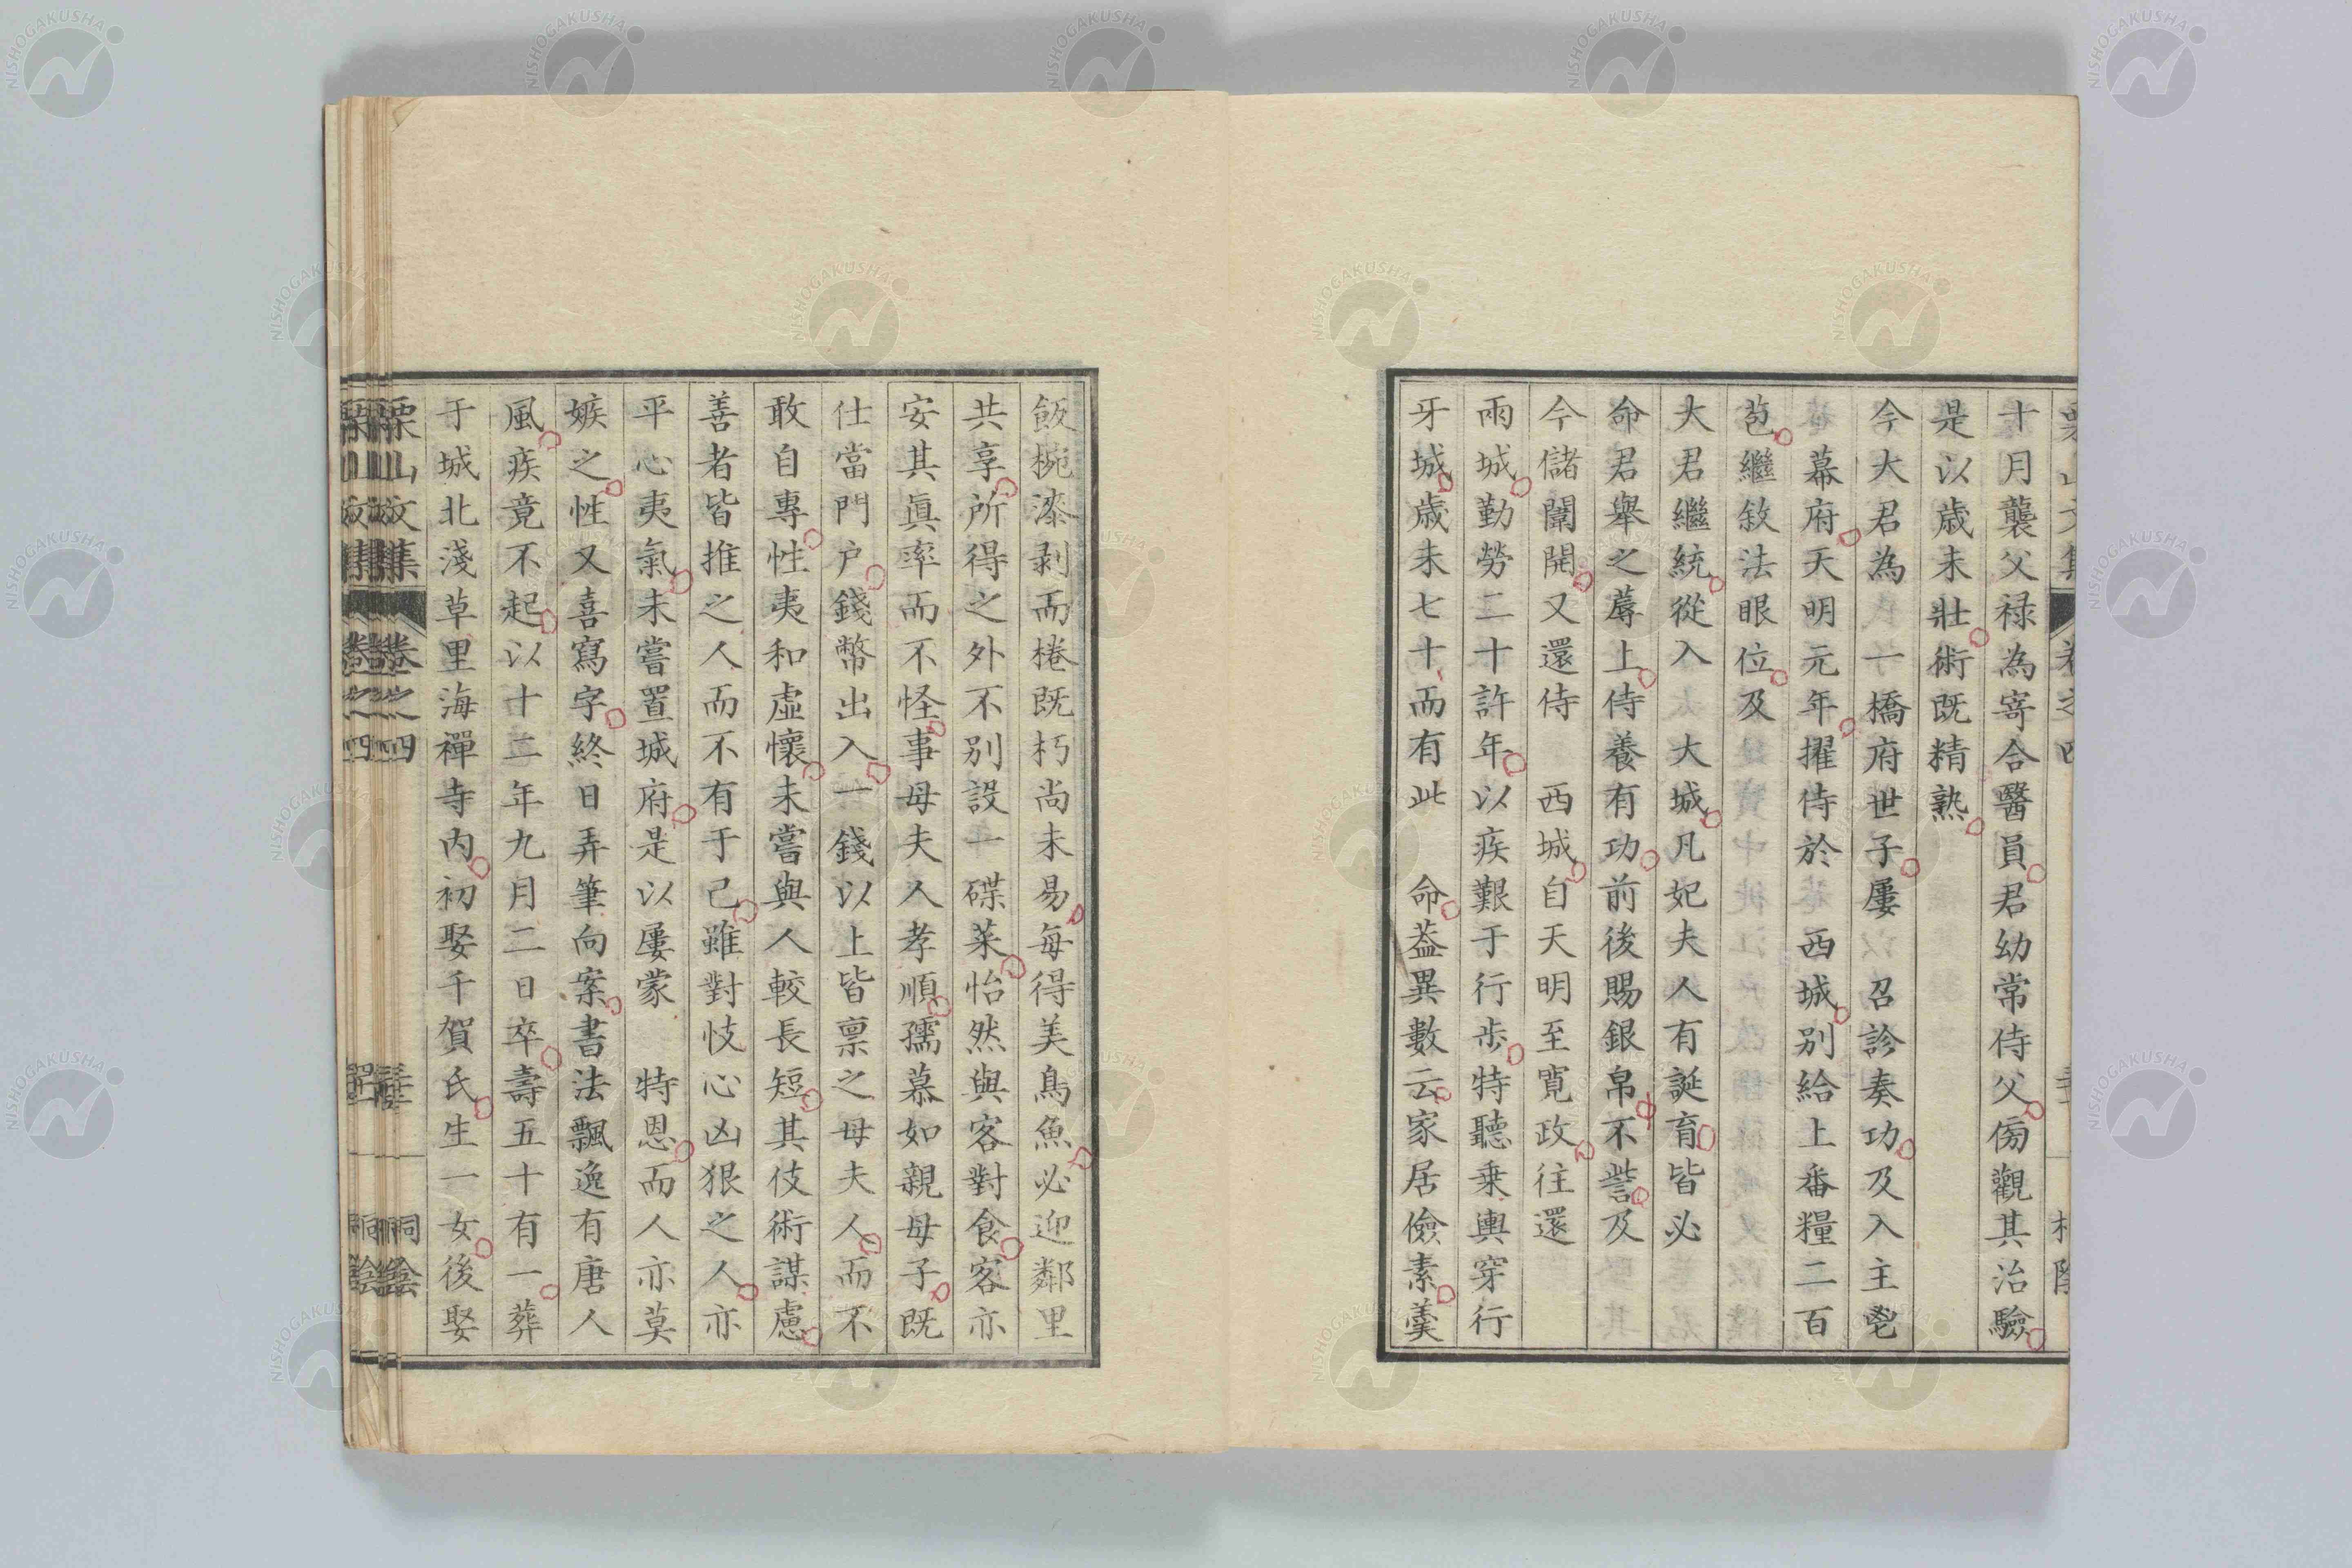 十月襲父禄為寄合醫員君幼常侍父傍觀其治驗
是以歳未壯術既精熟
今大君為一橋府世子屢召診奏功及入主鬯
幕府天明元年擢侍於西城别給上番糧二百
苞繼敘法眼位及
大君繼統從入大城凡妃夫人有誕育皆必
命君舉之蓐上侍養有功前後賜銀帛不訾及
今儲闈開又還侍西城自天明至寛政往還
兩城勤勞二十許年以疾艱于行歩特聽乗輿穿行
牙城歳未七十而有此命葢異數云家居儉素羹
飯椀漆剥而棬既朽尚未易每得美鳥魚必迎鄰里
共享所得之外不别設一碟菜怡然與客對食客亦
安其眞率而不怪事母夫人孝順孺慕如親母子既
仕當門户錢幣出入一錢以上皆禀之母夫人而不
敢自專性夷和虚懷未嘗與人較長短其伎術謀慮
善者皆推之人而不有于己雖對忮心凶狠之人亦
平心夷氣未嘗置城府是以屢蒙特恩而人亦莫
嫉之性又喜寫字終日弄筆向案書法飄逸有唐人
風疾竟不起以十二年九月二日卒壽五十有一葬
于城北淺草里海禪寺内初娶千賀氏生一女後娶
栗山文集
卷之四
桐陰